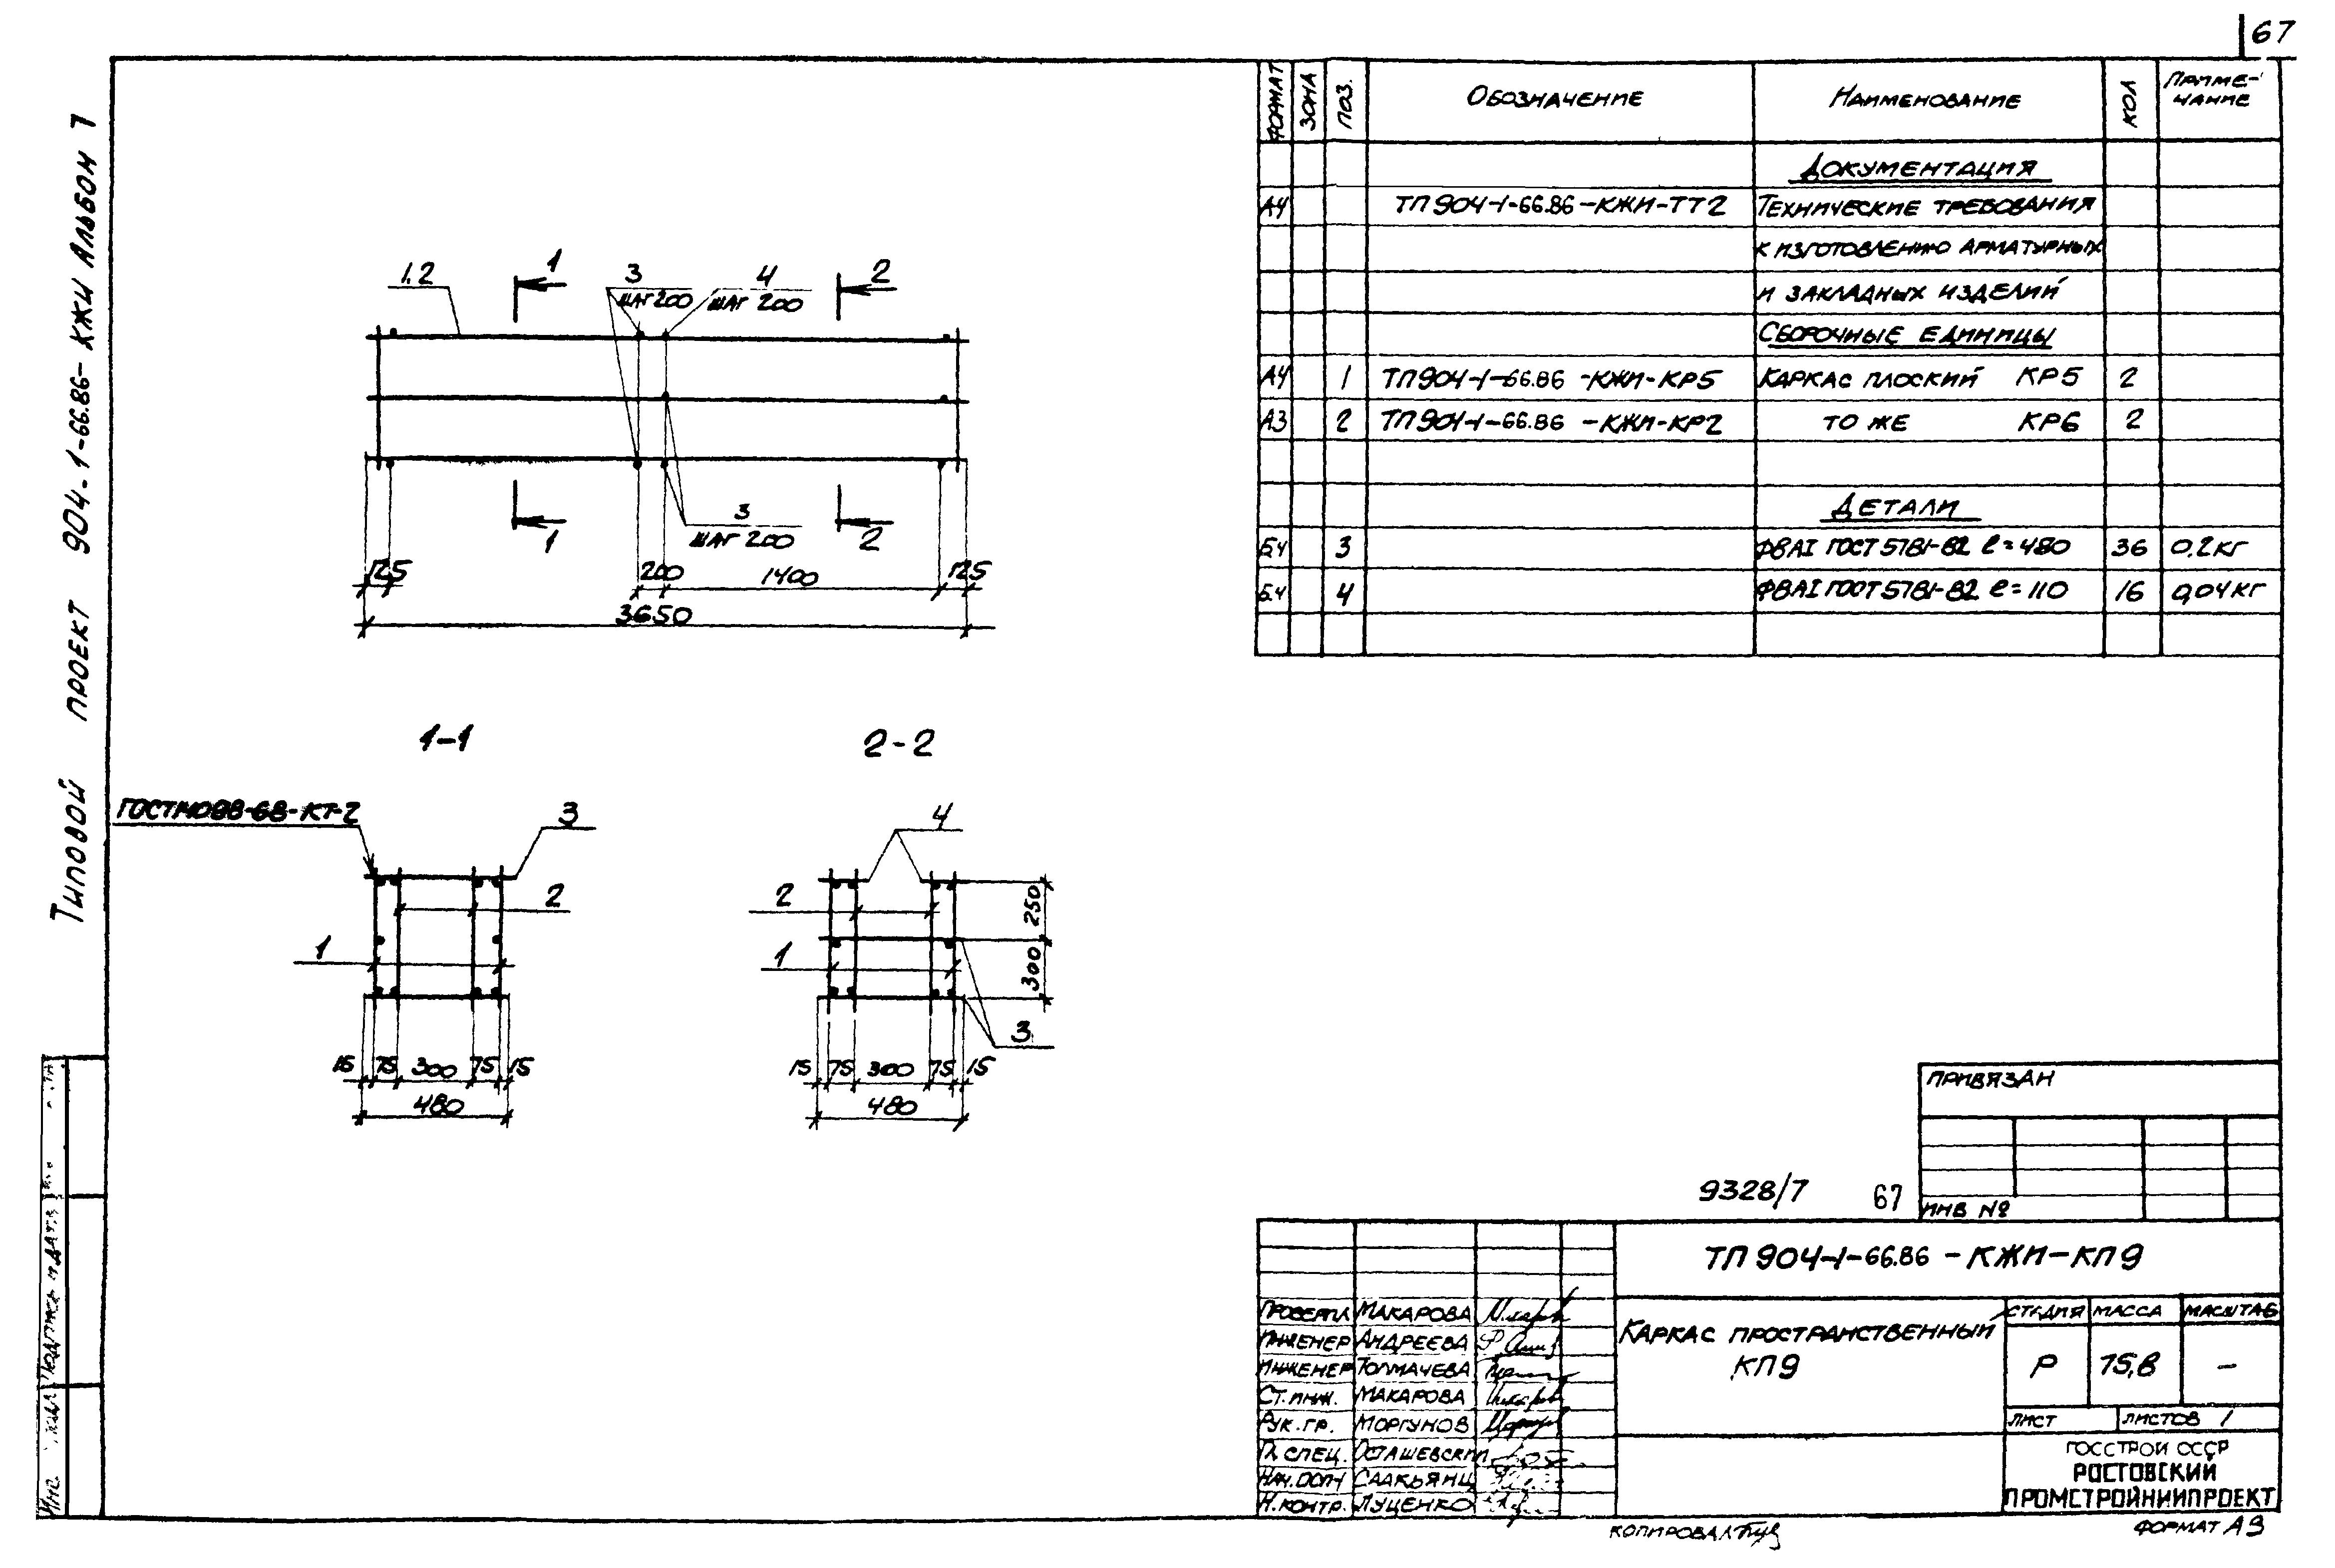 67
Типовой проект 904-1-66.86-КЖИ Альбом 7
ФОРМАТ ЗОНА ПОЗ. ОБОЗНАЧЕНИЕ НАИМЕНОВАНИЕ КОЛ ПРИМЕ-
ЧАНИЕ
ДОКУМЕНТАЦИЯ
А4 ТП 904-1-66.86-КЖИ-ТТ2 ТЕХНИЧЕСКИЕ ТРЕБОВАНИЯ
К ИЗГОТОВЛЕНИЮ АРМАТУРНЫХ
И ЗАКЛАДНЫХ ИЗДЕЛИЙ
СБОРОЧНЫЕ ЕДИНИЦЫ
А4 1 ТП 904-1-66.86-КЖИ-КР5 КАРКАС ПЛОСКИЙ КР5 2
А3 2 ТП 904-1-66.86-КЖИ-КР2 ТО ЖЕ КР6 2
ДЕТАЛИ
Б4 3 Ф8АI ГОСТ 5781-82 ℓ=480 36 0,2 КГ
Б.4 4 Ф8АI ГОСТ 5781-82 ℓ=110 16 0,04 КГ
1.2 1 3 4 2
ШАГ 200 ШАГ 200
3
ШАГ 200
1 2
125 200 1400 125
3650
1-1 2-2
ГОСТ14098-68-КТ-2 3
2
1
15 75 300 75 15
480
4
2
1
250
300
3
15 75 300 75 15
480
ПРИВЯЗАН
ИНВ №
9328/7 67
ТП 904-1-66.86-КЖИ-КП9
ПРОВЕРИЛ МАКАРОВА
ИНЖЕНЕР АНДРЕЕВА
ИНЖЕНЕР ТОЛМАЧЕВА
СТ.ИНЖ. МАКАРОВА
РУК.ГР. МОРГУНОВ
ГЛ.СПЕЦ. ОСТАШЕВСКИЙ
СААКЬЯНЦ
Н.КОНТР. ЛУЦЕНКО
КАРКАС ПРОСТРАНСТВЕННЫЙ
КП9
СТАДИЯ МАССА МАСШТАБ
Р 75,8 –
ЛИСТ ЛИСТОВ 1
ГОССТРОЙ СССР
РОСТОВСКИЙ
ПРОМСТРОЙНИИПРОЕКТ
КОПИРОВАЛ
ФОРМАТ А3